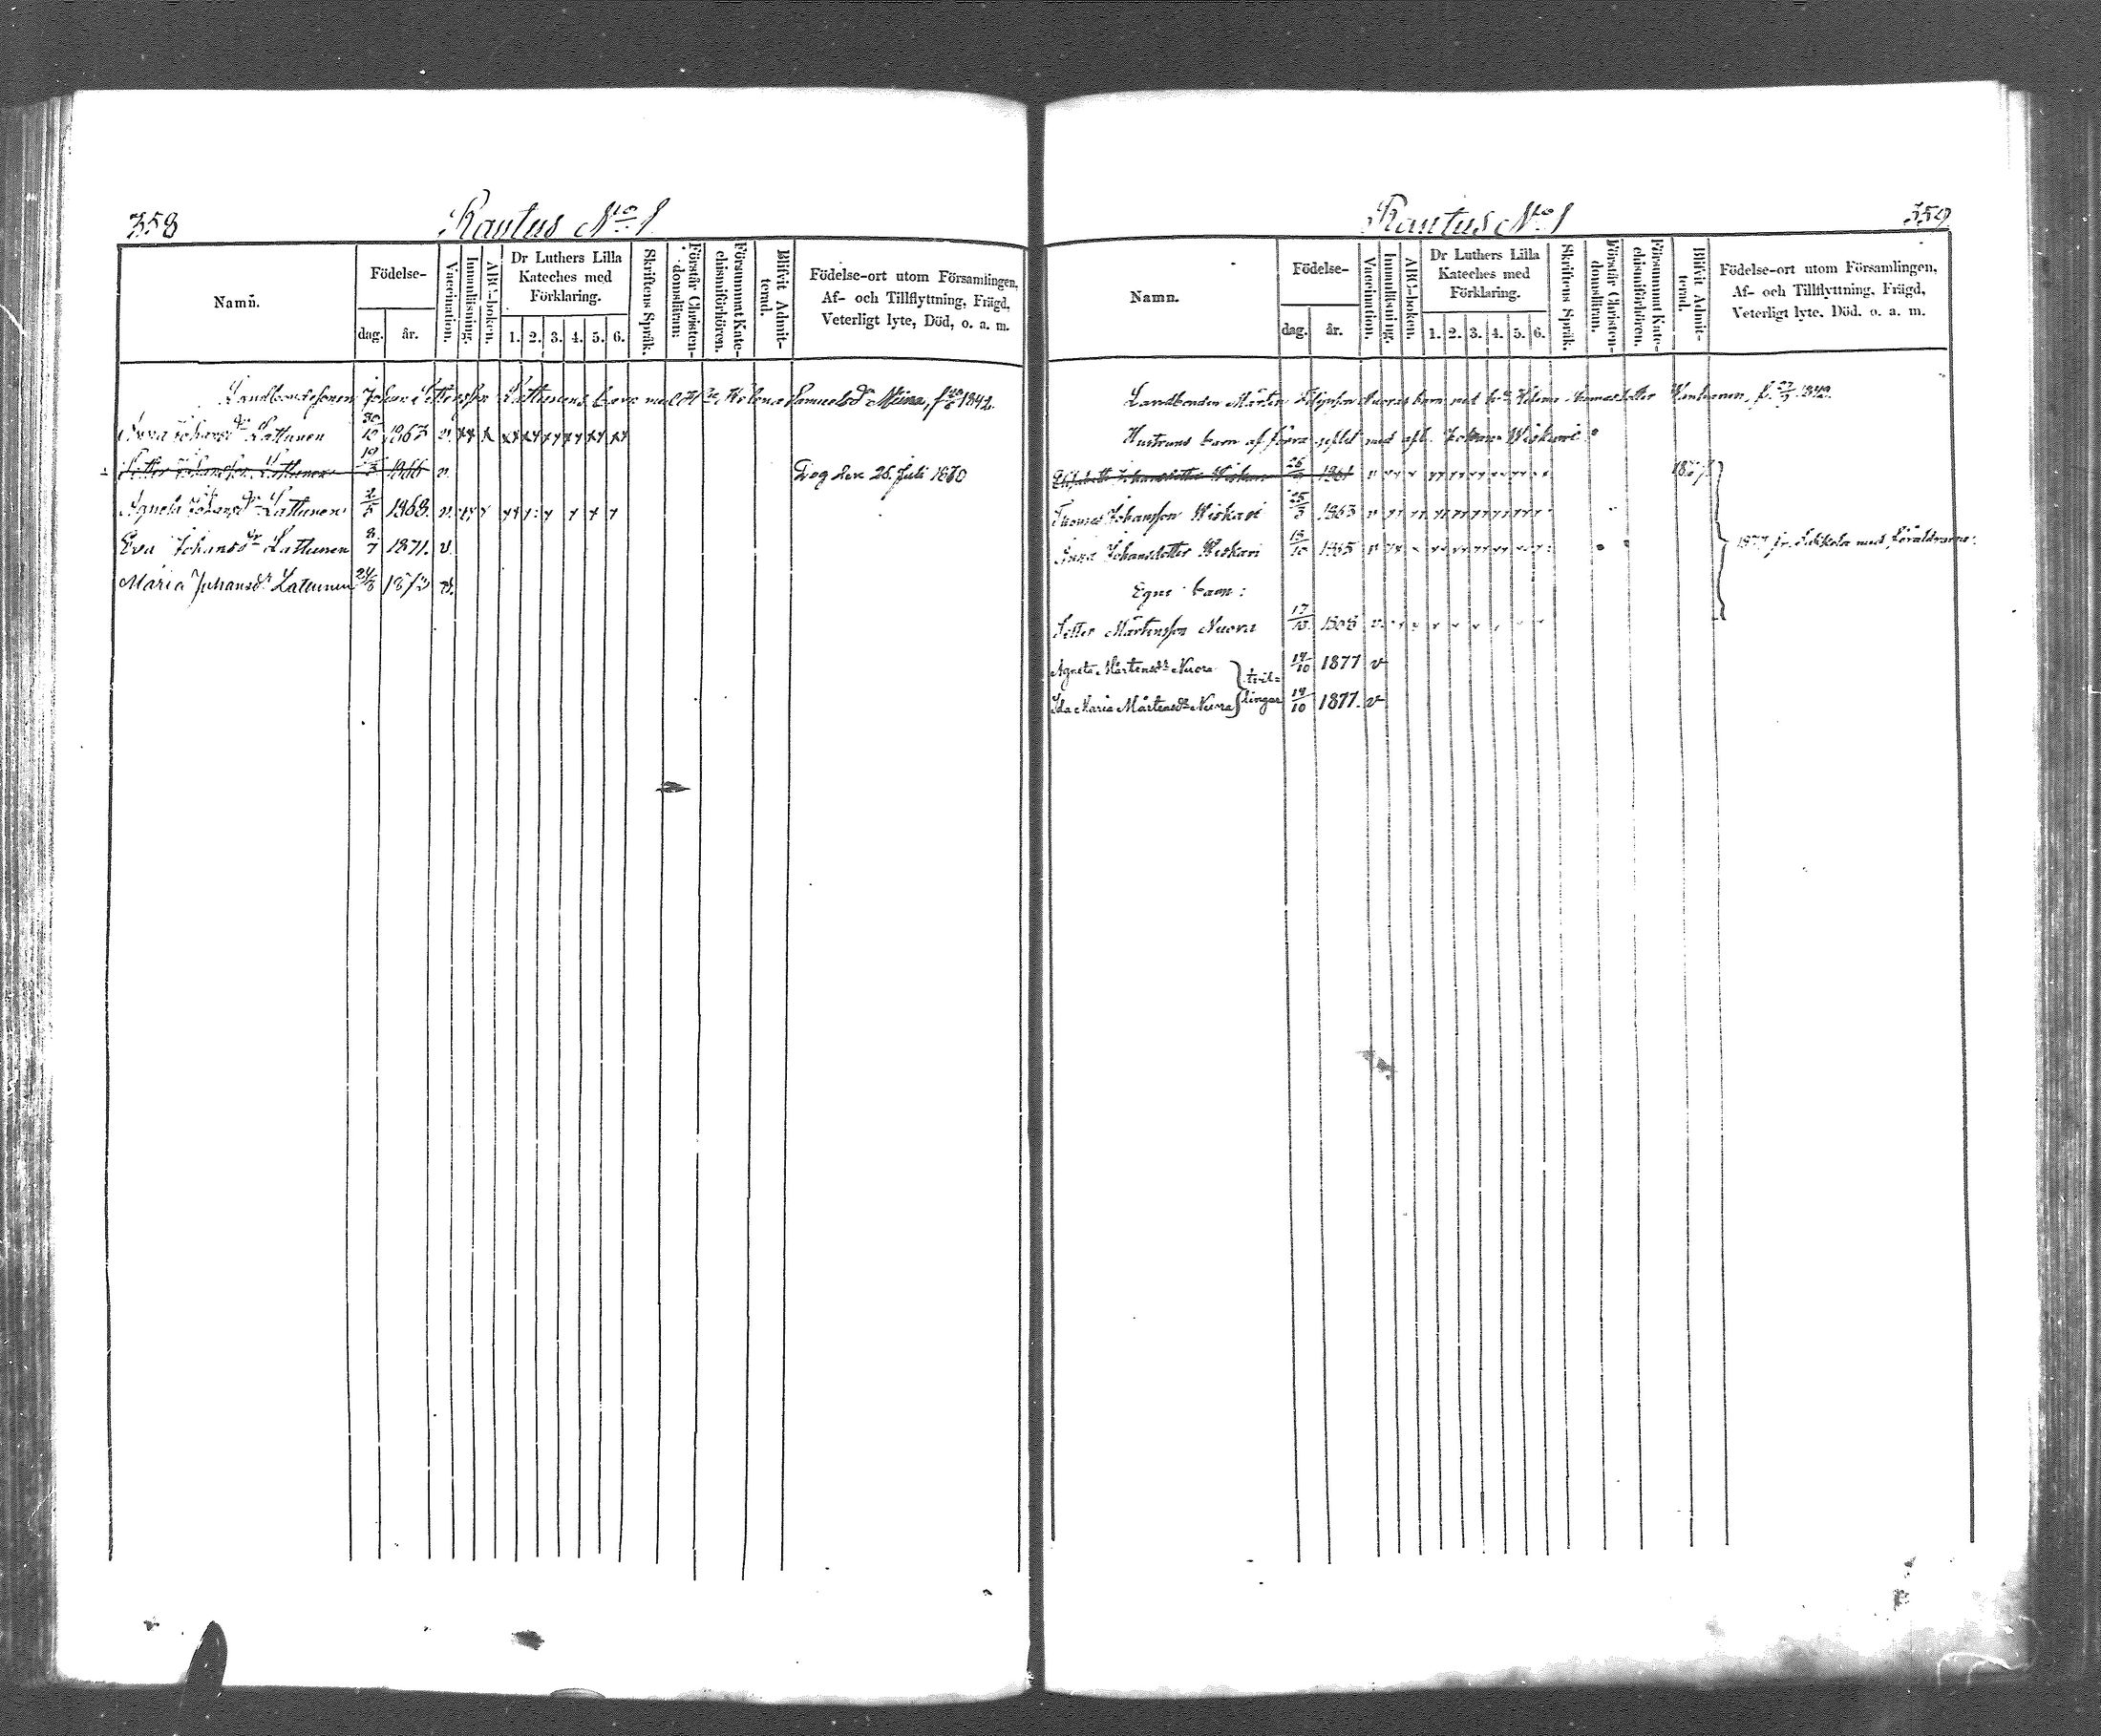 358
Rautus No 1
Namn.
Födelse-
dag.
år.
Vaccination.
Innanläsning.
ABC-boken.
Dr Luthers Lilla
Kateches med
Förklaring.
1. 2. 3. 4. 5. 6.
Skriftens Språk.
Förstår Christen-
domsläran.
Försummat Kate-
chismiförhören.
Blifvit Admit-
terad.
Födelse-ort utom Församlingen,
Af- och Tillflyttning, Frägd,
Veterligt lyte, Död, o. a. m.
Landbondesonen Johan Pettersson Lattunens barn med Helena Samuelsdr Miina, f. 1842.
Anna Johansdr Lattunen 30/10 1863 v.
Petter Johansson Lattunen 19/3 1866 v. Dog den 28. Juli 1870
Agneta Johansdr Lattunen 2/5 1868. v.
Eva Johansdr Lattunen 8/7 1871. v.
Maria Johansdr Lattunen 24/8 1873 v.
359
Rautus No 1
Namn.
Födelse-
dag.
år.
Vaccination.
Innanläsning.
ABC-boken.
Dr Luthers Lilla
Kateches med
Förklaring.
1. 2. 3. 4. 5. 6.
Skriftens Språk.
Förstår Christen-
domsläran.
Försummat Kate-
chismiförhören.
Blifvit Admit-
terad.
Födelse-ort utom Församlingen,
Af- och Tillflyttning, Frägd,
Veterligt lyte, Död, o. a. m.
Landbonden Mårten Nuoras barn med Helena f. 1842.
Hustruns barn af förra giftet med afl. Johan Wiskari
Elisabeth Johansdotter Wiskari 1861 v
Thomas Johansson Wiskari 25/3 1863 v
Anna Johansdotter Wiskari 1865 v
1877 fr. Sakkola med föräldrarne.
Egne barn:
Petter Mårtensson Nuora 17 v.
Agneta Mårtensdr Nuora 19/10 1877 v
tvil-
lingar
Ida Maria Mårtensdr Nuora 19/10 1877. v